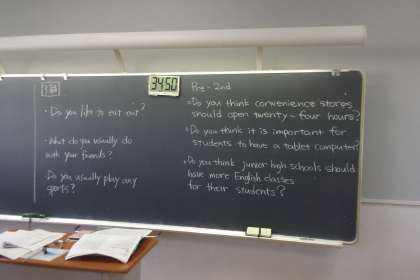 3級
・Do you like to eat out?
・What do you usually do
with your friends?
・Do you usually play any
sports?
34:50
Pre-2nd
・Do you think convenience stores
should open twenty-four hours?
・Do you think it is important for
students to have a tablet computer?
・Do you think junior high schools should
have more English classes
for their students?